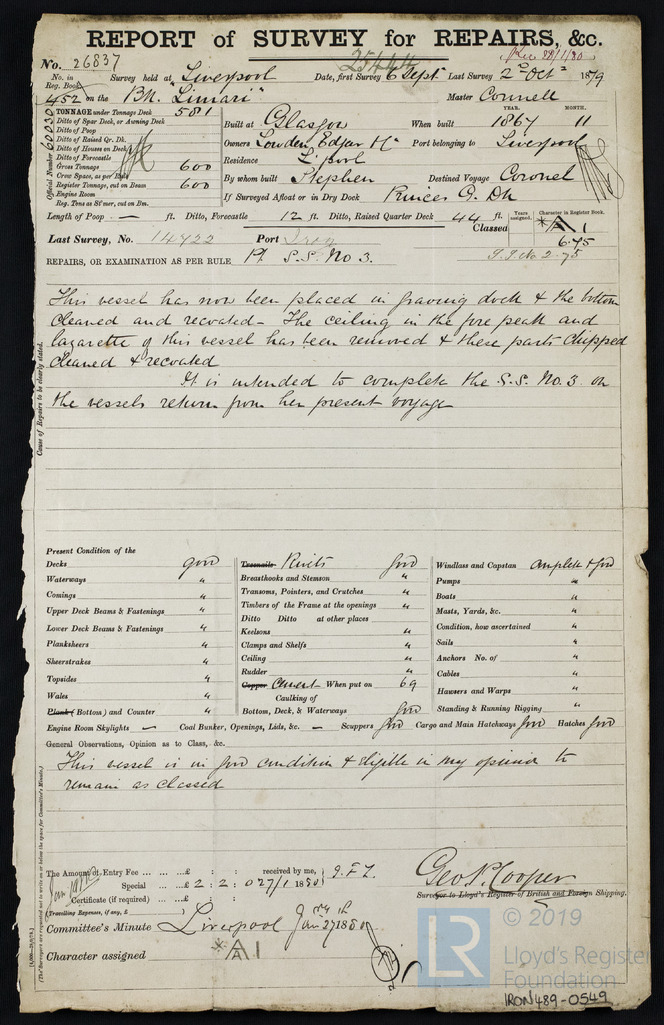 REPORT of SURVEY for REPAIRS, &c.
No. 26837
Rec 28/1/80
No. in Reg. Book.
Survey held at Liverpool Date, first Survey 6 Sept Last Survey 2nd Octr 1879
452 on the Bk. "Limari" Master Connell
Official Number 60030
TONNAGE under Tonnage Deck 581
Ditto of Spar Deck, or Awning Deck
Ditto of Poop
Ditto of Raised Qr. Dk.
Ditto of Houses on Deck
Ditto of Forecastle
Gross Tonnage 600
Crew Space, as per Rule
Register Tonnage, cut on Beam 600
Engine Room
Reg. Tons as St'mer, cut on Bm.
YEAR. MONTH.
Built at Glasgow When built 1867 11
Owners Lowden Edgar & Co Port belonging to Liverpool
Residence L'pool
By whom built Stephen Destined Voyage Coronel
If Surveyed Afloat or in Dry Dock Princes G. Dk
Length of Poop — ft. Ditto, Forecastle 12 ft. Ditto, Raised Quarter Deck 44 ft.
Classed
Years assigned.
Character in Register Book.
*A1
6.75
Last Survey, No. 14922 Port Iron
S.S. No 2-75
REPAIRS, OR EXAMINATION AS PER RULE Pt S.S. No 3.
Cause of Repairs to be clearly stated.
This vessel has now been placed in graving dock & the bottom
cleaned and recoated – The ceiling in the fore peak and
lazarette of this vessel has been removed & these parts chipped
cleaned & recoated
It is intended to complete the S.S. No. 3. on
the vessels return from her present voyage
Present Condition of the
Decks good
Waterways "
Comings "
Upper Deck Beams & Fastenings "
Lower Deck Beams & Fastenings "
Planksheers "
Sheerstrakes "
Topsides "
Wales "
Plank (Bottom) and Counter "
Treenails Rivets good
Breasthooks and Stemson "
Transoms, Pointers, and Crutches "
Timbers of the Frame at the openings "
Ditto Ditto at other places "
Keelsons "
Clamps and Shelfs "
Ceiling "
Rudder "
Copper Cement When put on 69
Caulking of
Bottom, Deck, & Waterways good
Windlass and Capstan complete & good
Pumps "
Boats "
Masts, Yards, &c. "
Condition, how ascertained "
Sails "
Anchors No. of "
Cables "
Hawsers and Warps "
Standing & Running Rigging "
Engine Room Skylights — Coal Bunker, Openings, Lids, &c. — Scuppers good Cargo and Main Hatchways good Hatches good
General Observations, Opinion as to Class, &c.
This vessel is in good condition & eligible in my opinion to
remain as classed
The Amount of Entry Fee ... ... £ : : received by me,
Special ... ... £ 2 : 2 : 0 27/1 1880
Certificate (if required) ... £ : :
(Travelling Expenses, if any, £ )
Geo P. Cooper
Surveyor to Lloyd's Register of British and Foreign Shipping.
Committee's Minute Liverpool Jan 27 1880
Character assigned *A1
© 2019
LR
Lloyd's Register
Foundation
IRON489-0549